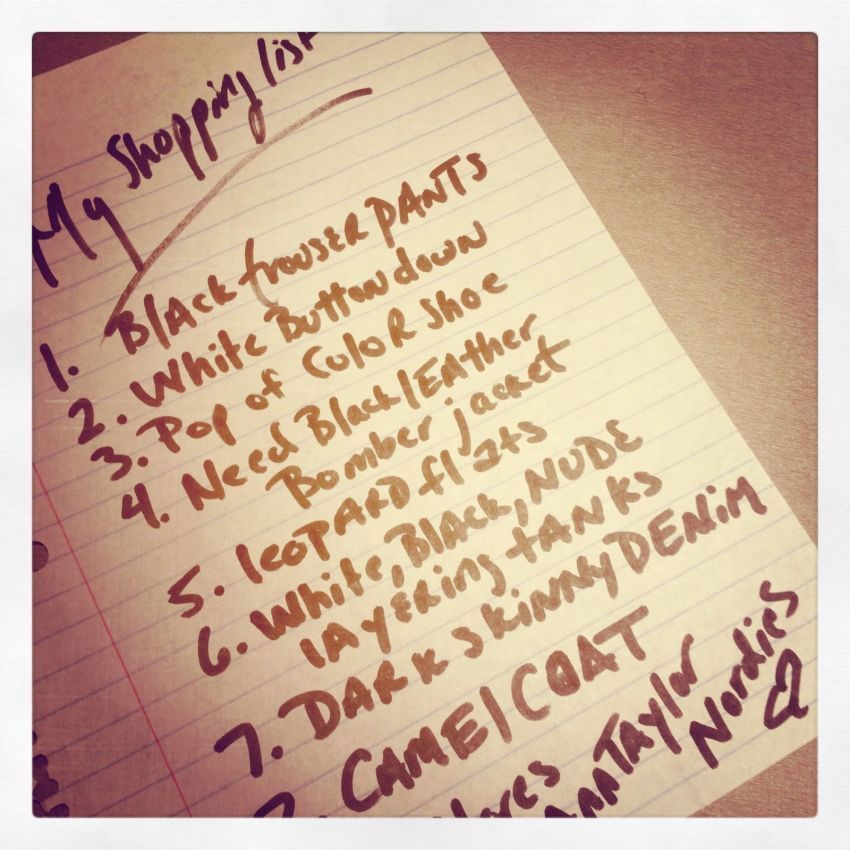 My Shopping list
1. Black trouser PANTS
2. White Button down
3. Pop of Color Shoe
4. Need Black LEAther
Bomber jacket
5. leopard flats
6. White, Black, NUDE
lAyering tANKS
7. DARK skiNNy DENiM
CAMEl COAT
Ann Taylor
Nordies